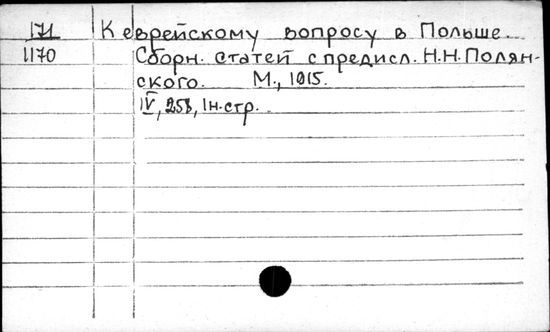 171 К еврейскому вопросу в Польше.
1170 Сборн. статей с предисл. Н.Н.Полян-
ского. М., 1915.
IV, 258, 1н.стр.